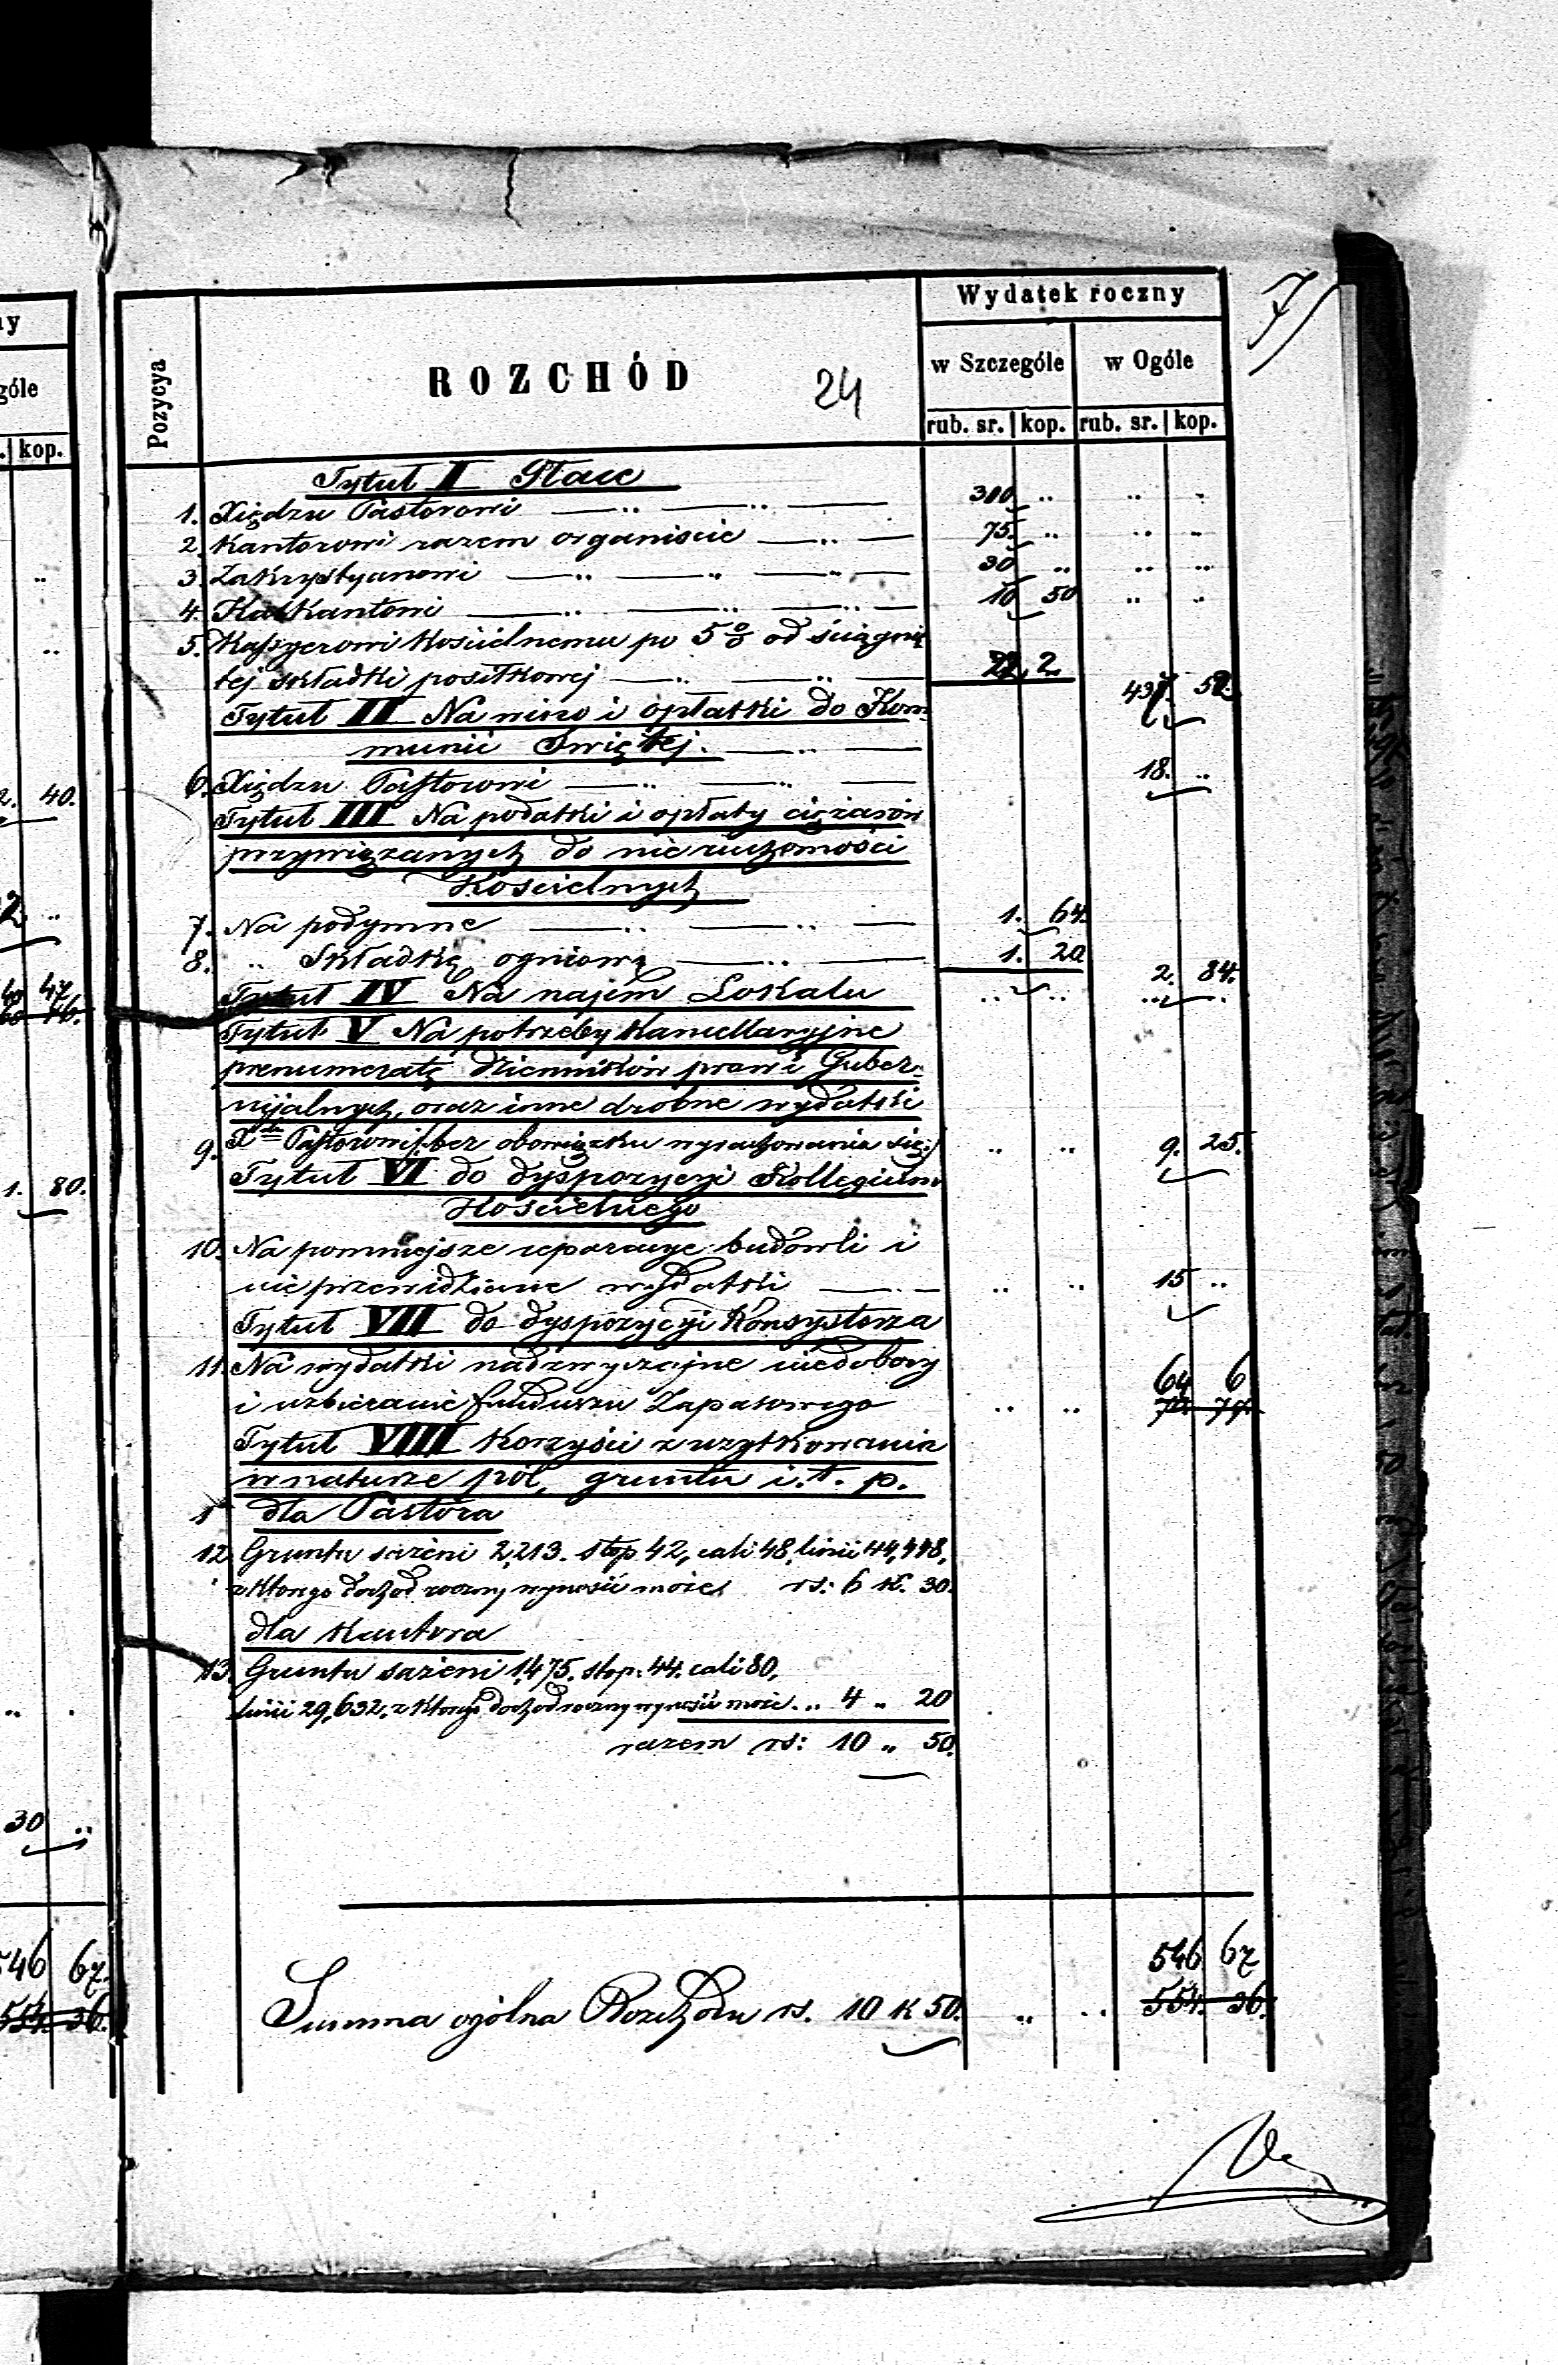 Wydatek roczny
7
ROZCHÓD
24
Pozycya
w Szczególe | w Ogóle
rub. sr. | kop. | rub. sr. | kop.
Tytuł I Płace
1. Xiędzu Pastorowi 300 .. .. ..
2. Kantorowi razem organiście 75. .. .. ..
3. Zakrystyanowi 30 .. .. ..
4. Kalkantowi 10 50 .. ..
5. Kassyerowi Kościelnemu po 5 % od ściągnię
tej składki posiłkowej 22. 2. 437. 52.
Tytuł II Na wino i opłatki do Kom-
munii Świętej.
6. Xiędzu Pastorowi 18. ..
Tytuł III Na podatki i opłaty ciężarów
przywiązanych do nieruchomości
Kościelnych
7. Na podymne 1. 64.
8. .. Składkę ogniową 1. 20 2. 84.
Tytuł IV Na najem Lokalu .. .. .. ..
Tytuł V Na potrzeby Kancellaryjne
prenumeratę dzienników praw i Guber-
nijalnych, oraz inne drobne wydatki
9. Xdu Pastorowi /:bez obowiązku wyrachowania się:/ .. .. 9. 25.
Tytuł VI do dyspozycyi Kollegium
Kościelnego
10. Na pomniejsze reparacye budowli i
nieprzewidziane wydatki .. .. 15 ..
Tytuł VII do dyspozycyi Konsystorza
11. Na wydatki nadzwyczajne niedobory 64 6
i uzbieranie funduszu Zapasowego .. ..
Tytuł VIII Korzyści z użytkowania
w naturze pól, gruntu i. t. p.
dla Pastora
12. Gruntu sążeni 2,213. stóp 42, cali 48, linii 44,448,
z którego dochód roczny wynosić może rs: 6 k. 30.
dla Kantora
13. Gruntu sążeni 1,475. stóp. 44. cali 80,
linii 29,632, z którego dochód roczny wynosić może .. 4 .. 20
razem rs: 10 .. 50.
546 67
Summa ogólna Rozchodu rs. 10 k 50. .. .. 554. 36.
ny
góle
kop.
2. 40.
2 ..
40 47
1. 80.
30 ..
546 67.
554. 36.